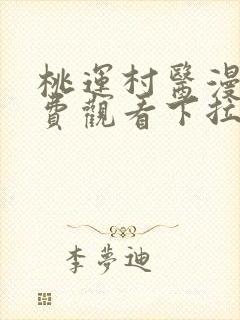 桃運村醫漫
費觀看下拉
李夢迪